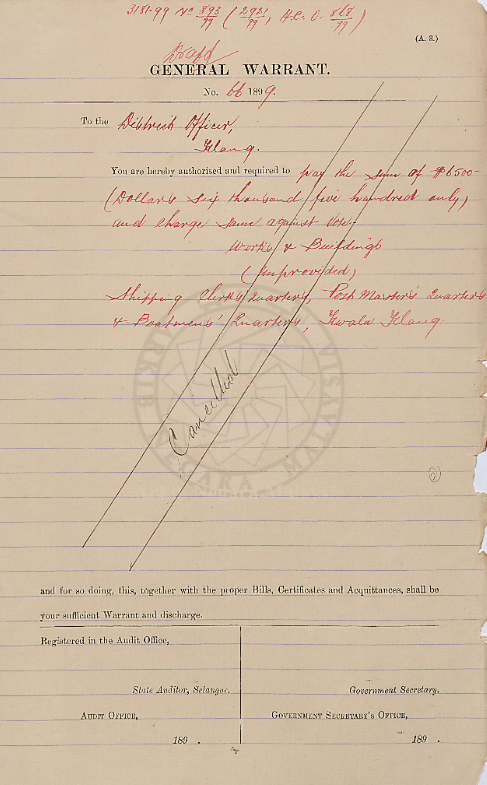 3181-99 No 893/99 (2921/99, H.C.O. 868/99)
(A. 3.)
Draft
GENERAL WARRANT.
No. 66 1899.
To the District Officer,
Klang.
You are hereby authorised and required to pay the sum of $6500-
(Dollars six thousand five hundred only)
and charge same against Vote-
Works & Buildings
(unprovided)
Shipping Clerk's Quarters, Post Master's Quarters
& Boatmens' Quarters, Kwala Klang
Cancelled
ARKIB NEGARA MALAYSIA
and for so doing, this, together with the proper Bills, Certificates and Acquittances, shall be
your sufficient Warrant and discharge.
Registered in the Audit Office,
State Auditor, Selangor.
Government Secretary.
AUDIT OFFICE,
GOVERNMENT SECRETARY'S OFFICE,
189 .
189 .